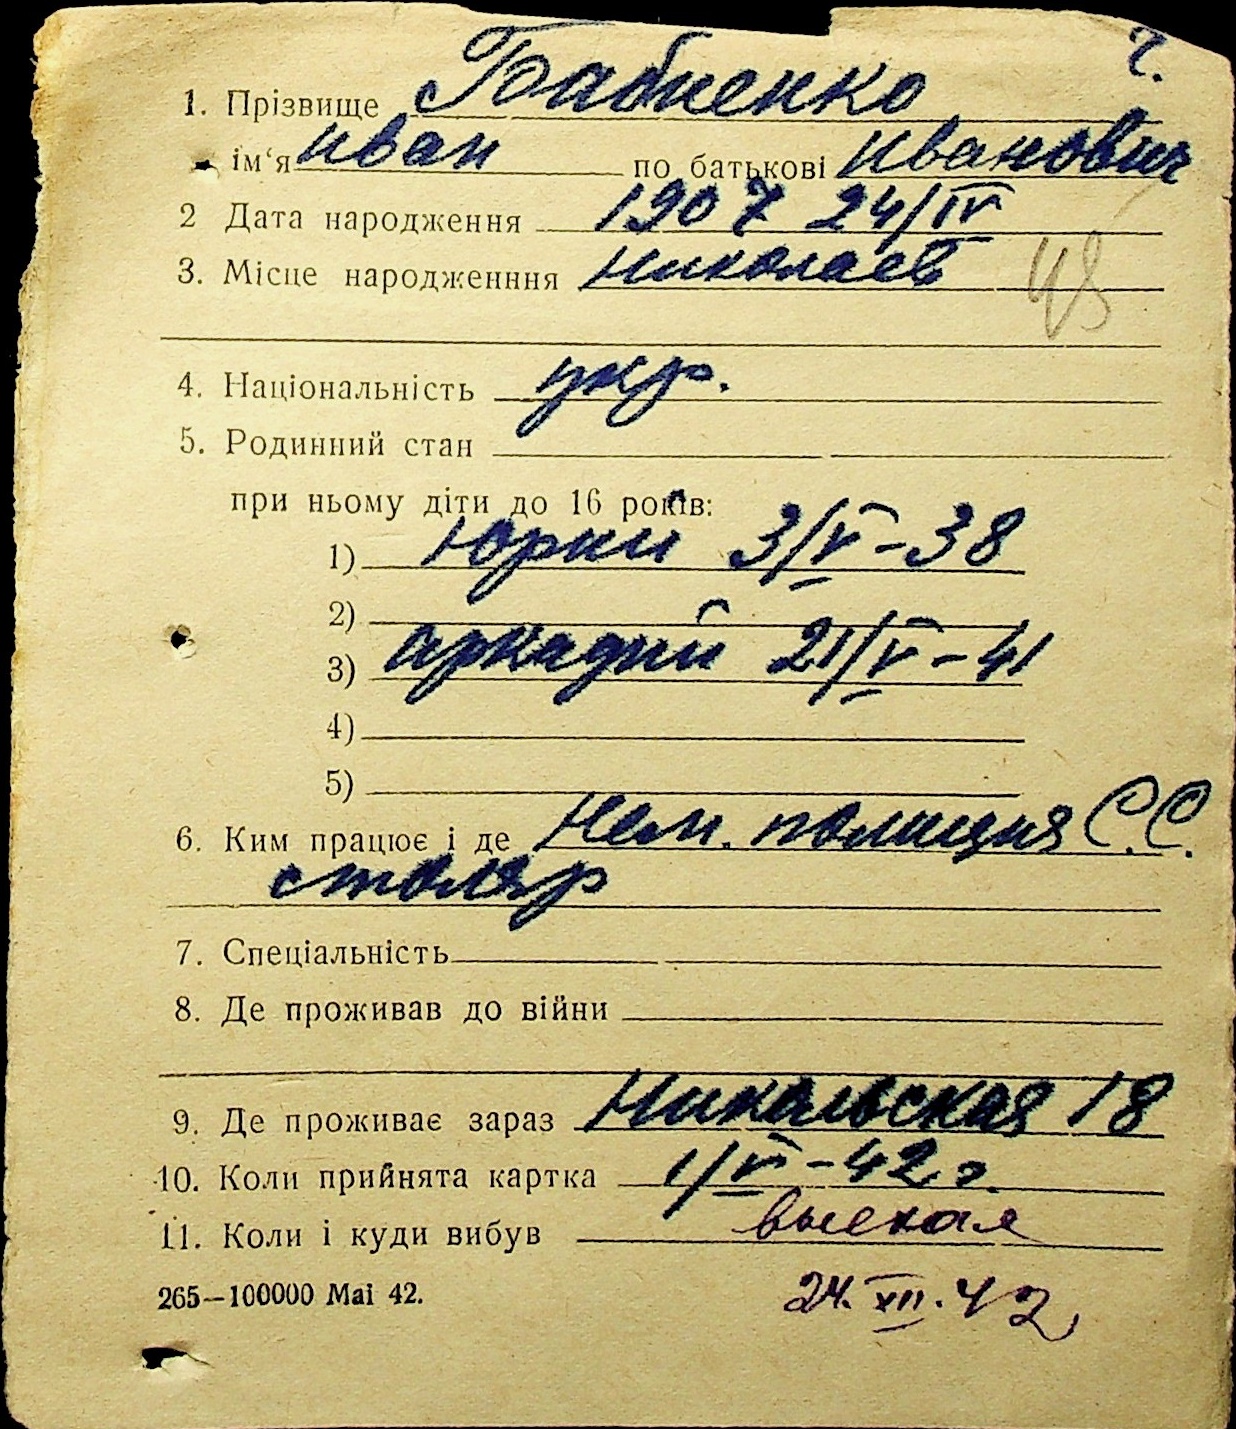 ч.
1. Прізвище Бабиенко
ім'я Иван по батькові Иванович
2 Дата народження 1907 24/IV
3. Місце народженння Николаев
48
4. Національність укр.
5. Родинний стан
при ньому діти до 16 років:
1) Юрий 3/V-38
2)
3) Аркадий 21/V-41
4)
5)
6. Ким працює і де Нем. полиция С.С.
столяр
7. Спеціальність
8. Де проживав до війни
9. Де проживає зараз Никольская 18
10. Коли прийнята картка 1/V-42 г.
11. Коли і куди вибув выехал
265—100000 Mai 42.
24. XII. 42